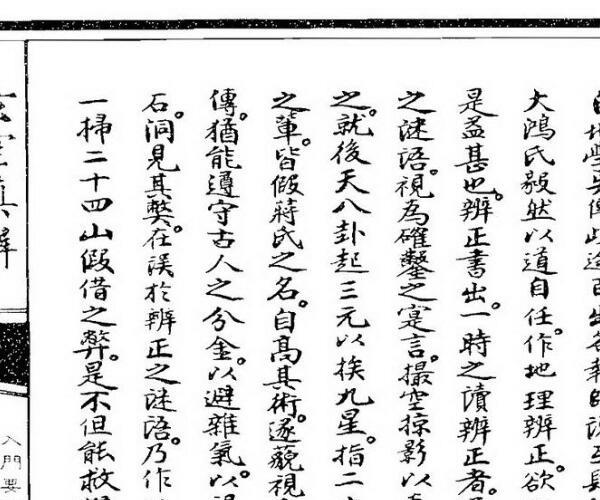 大鴻氏毅然以道自任。作地理辨正。欲
是益甚也。辨正書出。一時之讀辨正者。
之謎語。視為確鑿之寔言。撮空掠影以
之。就後天八卦起三元以挨九星。指二
之輩。皆假蔣氏之名。自高其術。遂藐視
傳。猶能遵守古人之分金。以避雜氣。以
石。洞見其獘。在误於辨正之谜語。乃作
一掃二十四山假借之弊。是不但能救
入門要